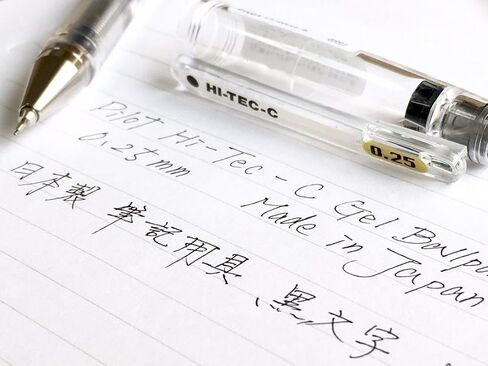 HI-TEC-C
0.25
Pilot Hi-Tec-C Gel
0.25mm Made in Japan
日本製 筆記用具、黒文字